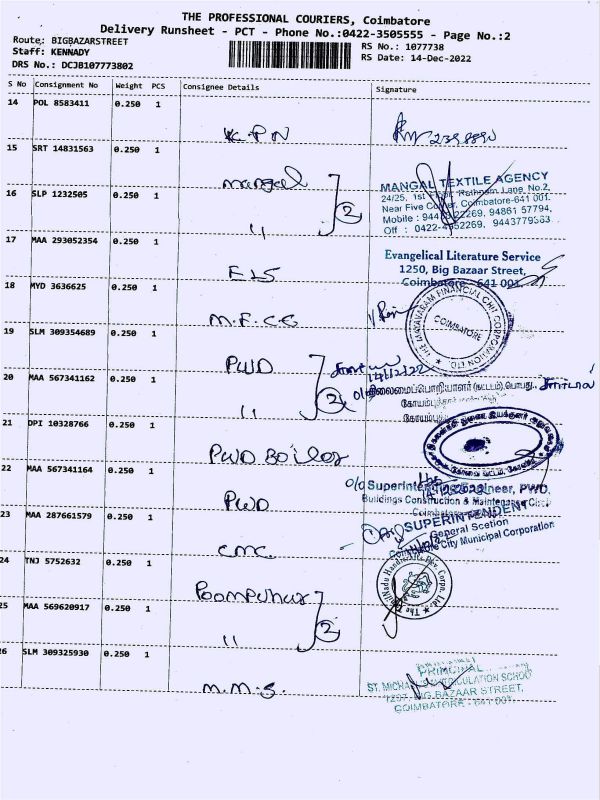 THE PROFESSIONAL COURIERS, Coimbatore
Delivery Runsheet - PCT - Phone No.:0422-3505555 - Page No.:2
Route: BIGBAZARSTREET
Staff: KENNADY
DRS No.: DCJB107773802
RS No.: 1077738
RS Date: 14-Dec-2022
S No Consignment No Weight PCS Consignee Details Signature
14 POL 8583411 0.250 1 K.P.N
15 SRT 14831563 0.250 1 Mangal
16 SLP 1232505 0.250 1 〃 2
MANGAL TEXTILE AGENCY
24/25, 1st Floor, Rathnam Lane, No.2,
Near Five Corner, Coimbatore-641 001.
Off : 0422-4352269, 9443779363.
17 MAA 293052354 0.250 1 ELS
Evangelical Literature Service
1250, Big Bazaar Street,
Coimbatore - 641 001.
18 MYD 3636625 0.250 1 M.F.CC
THE MAYAVARAM FINANCIAL CHIT CORPORATION LTD.
COIMBATORE
19 SLM 309354689 0.250 1 PWD
14/12/22
20 MAA 567341162 0.250 1 〃 2
21 DPI 10328766 0.250 1 PWD Boiler
22 MAA 567341164 0.250 1 PWD
O/o Superintending Engineer, PWD,
Buildings Construction & Maintenance Circle
23 MAA 287661579 0.250 1 CMC
SUPERINTENDENT
General Scetion
Coimbatore City Municipal Corporation
24 TNJ 5752632 0.250 1 Poompuhar
25 MAA 569620917 0.250 1 〃 2
The TamilNadu Handicrafts Dev. Corpn. Ltd.
26 SLM 309325930 0.250 1 M.M.S.
PRINCIPAL
ST. MICHAEL'S MATRICULATION SCHOOL
1297, BIG BAZAAR STREET,
COIMBATORE - 641 001.